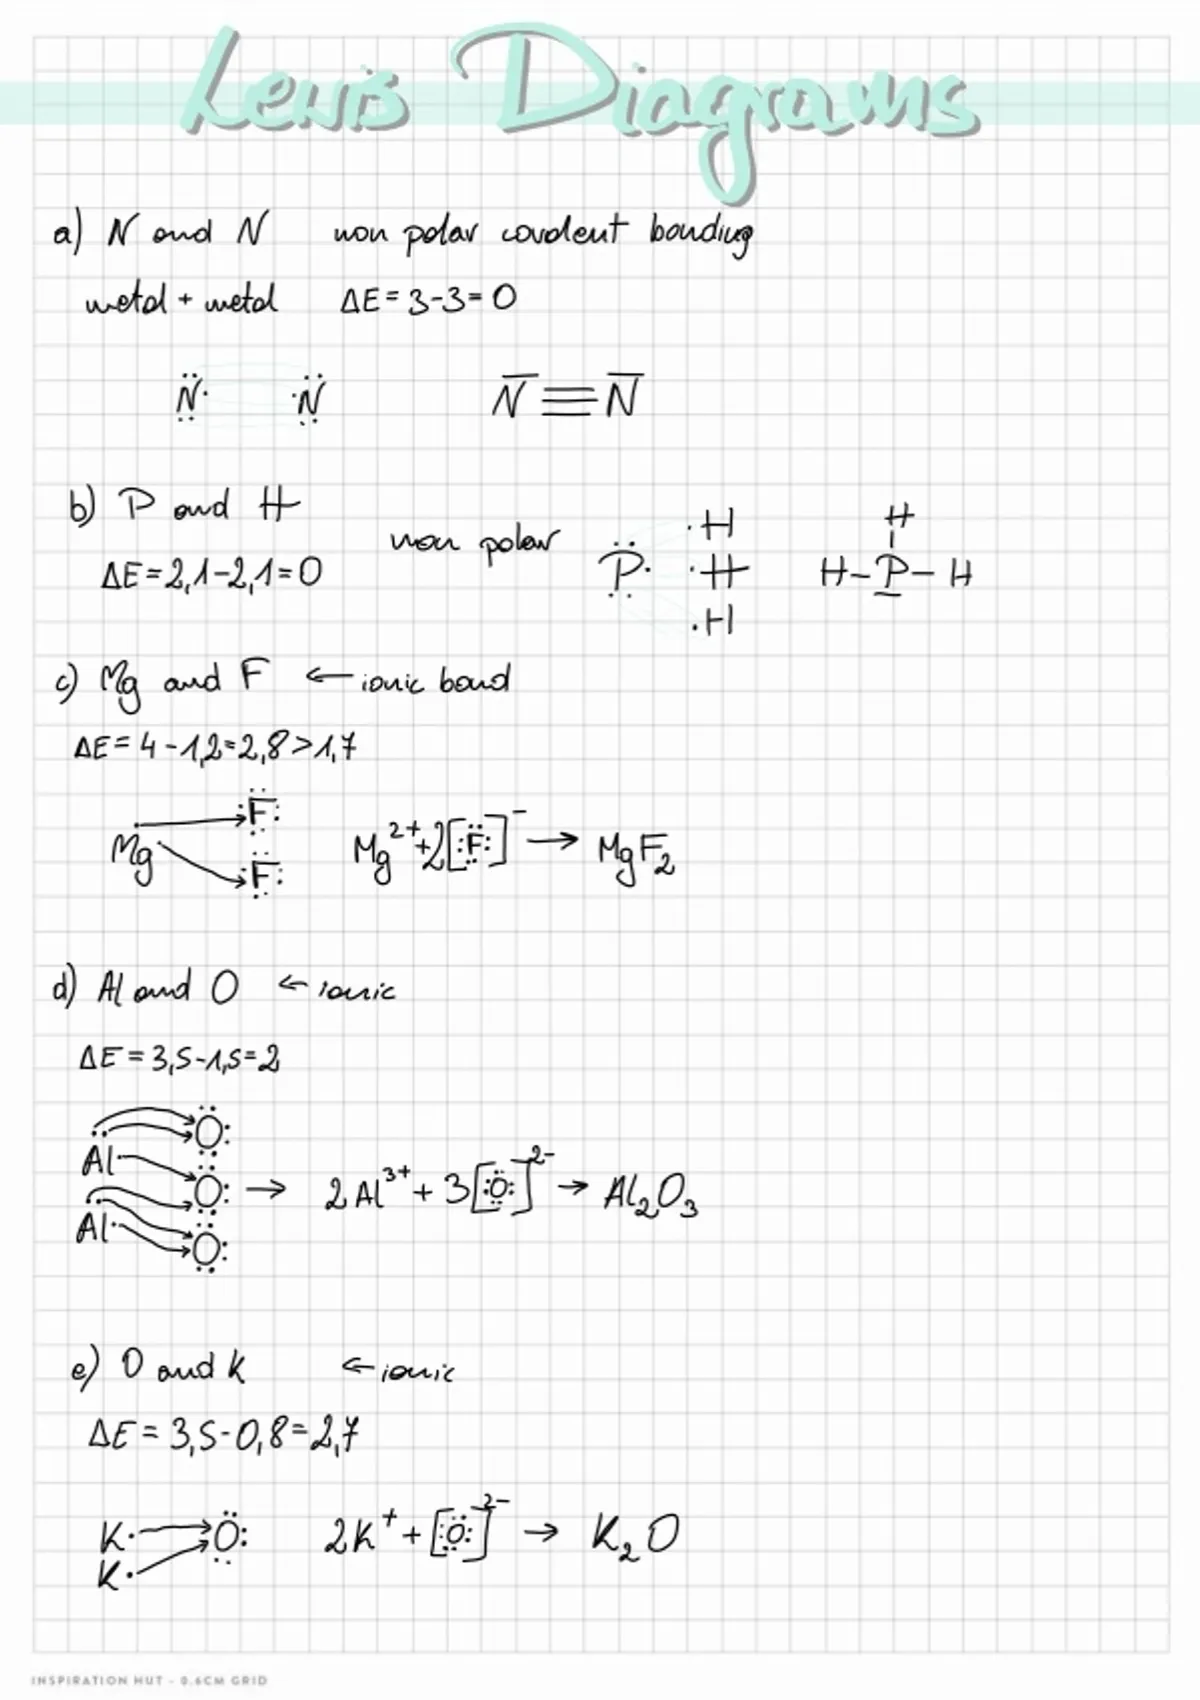 Lewis Diagrams
a) N and N non polar covalent bonding
metal + metal ΔE = 3-3=0
N̈· ·N̈ N̅≡N̅
b) P and H
non polar
ΔE=2,1-2,1=0
P· ·H ·H ·H
H
H-P-H
c) Mg and F ← ionic bond
ΔE= 4-1,2=2,8>1,7
Mg F F Mg²⁺+2[F]⁻ → MgF₂
d) Al and O ← ionic
ΔE = 3,5-1,5=2
Al Al O O O → 2Al³⁺ + 3[O]²⁻ → Al₂O₃
e) O and K ← ionic
ΔE = 3,5-0,8=2,7
K· K· O 2K⁺ + [O]²⁻ → K₂O
INSPIRATION HUT - 0.6CM GRID